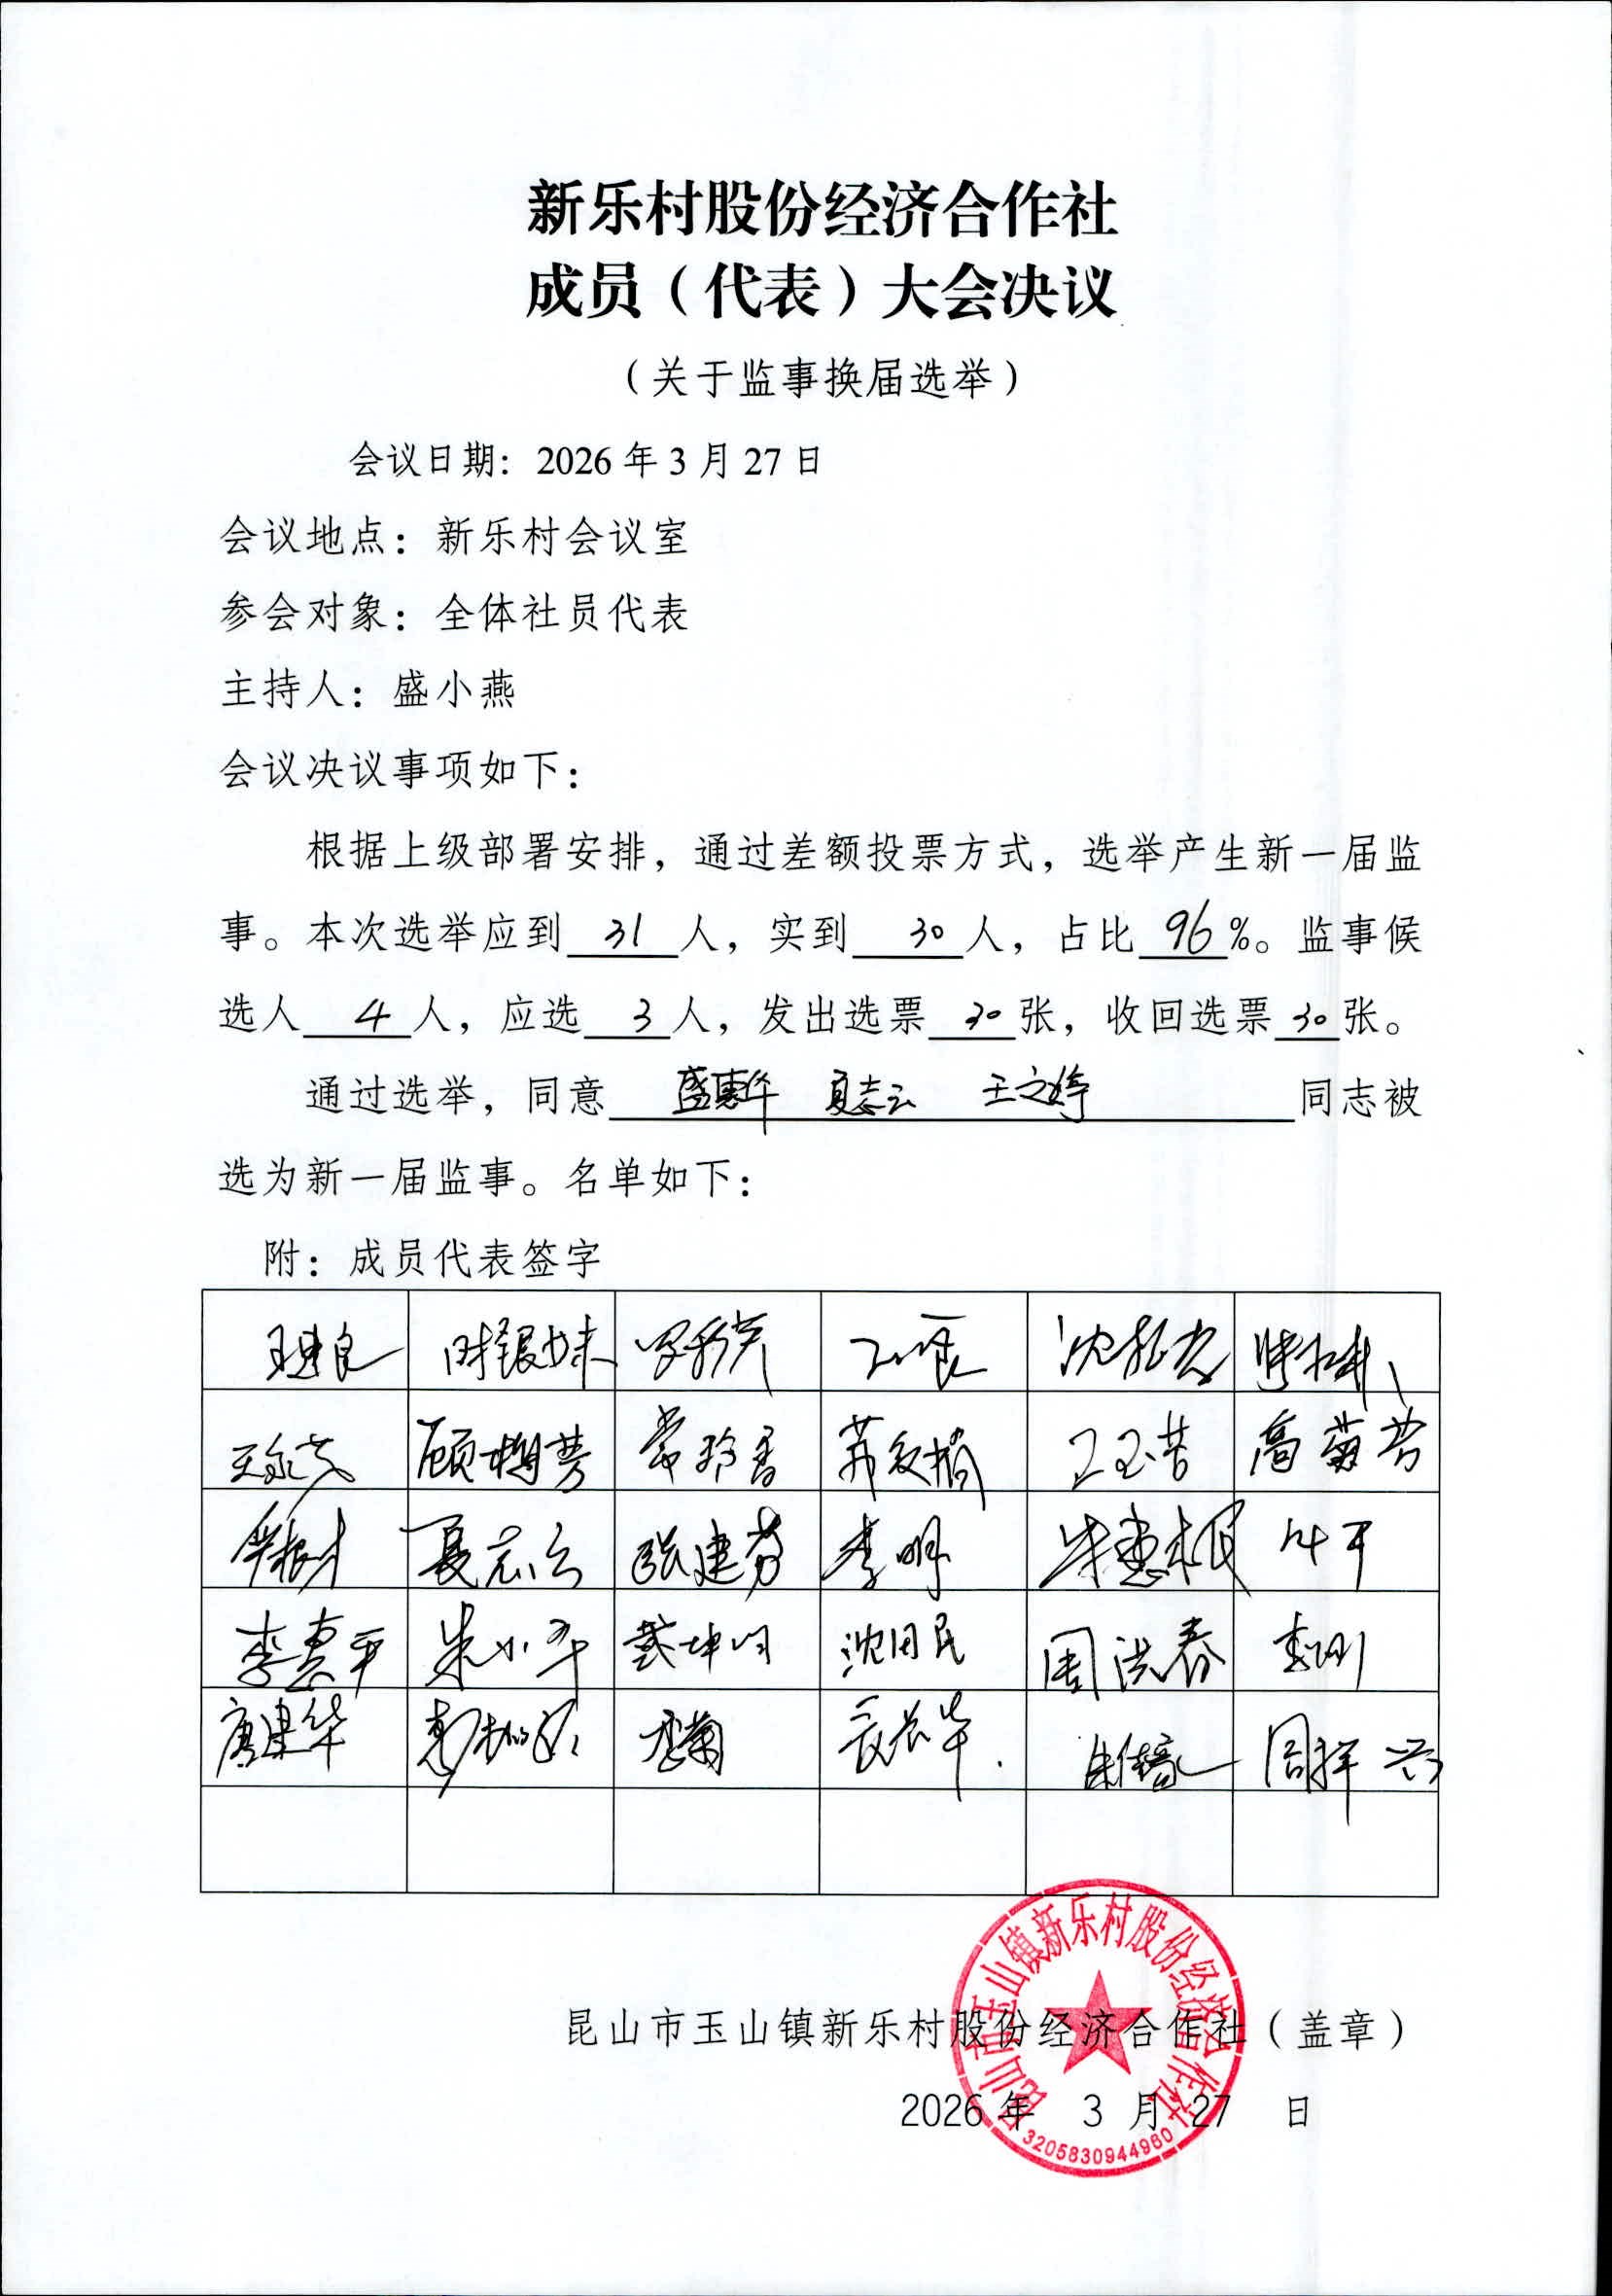 新乐村股份经济合作社
成员（代表）大会决议
（关于监事换届选举）
会议日期：2026年3月27日
会议地点：新乐村会议室
参会对象：全体社员代表
主持人：盛小燕
会议决议事项如下：
根据上级部署安排，通过差额投票方式，选举产生新一届监
事。本次选举应到 31 人，实到 30 人，占比 96 %。监事候
选人 4 人，应选 3 人，发出选票 30 张，收回选票 30 张。
通过选举，同意 盛惠华 夏志云 王文婷 同志被
选为新一届监事。名单如下：
附：成员代表签字
王建良 时银妹
顾梅芳 王玉苦 高菊芳
张建芬 李明 朱惠根
李惠平 朱小平 沈田民 周洪春 李刚
唐建华 周祥兴
昆山市玉山镇新乐村股份经济合作社（盖章）
2026年 3 月 27 日
昆山市玉山镇新乐村股份经济合作社
3205830944960